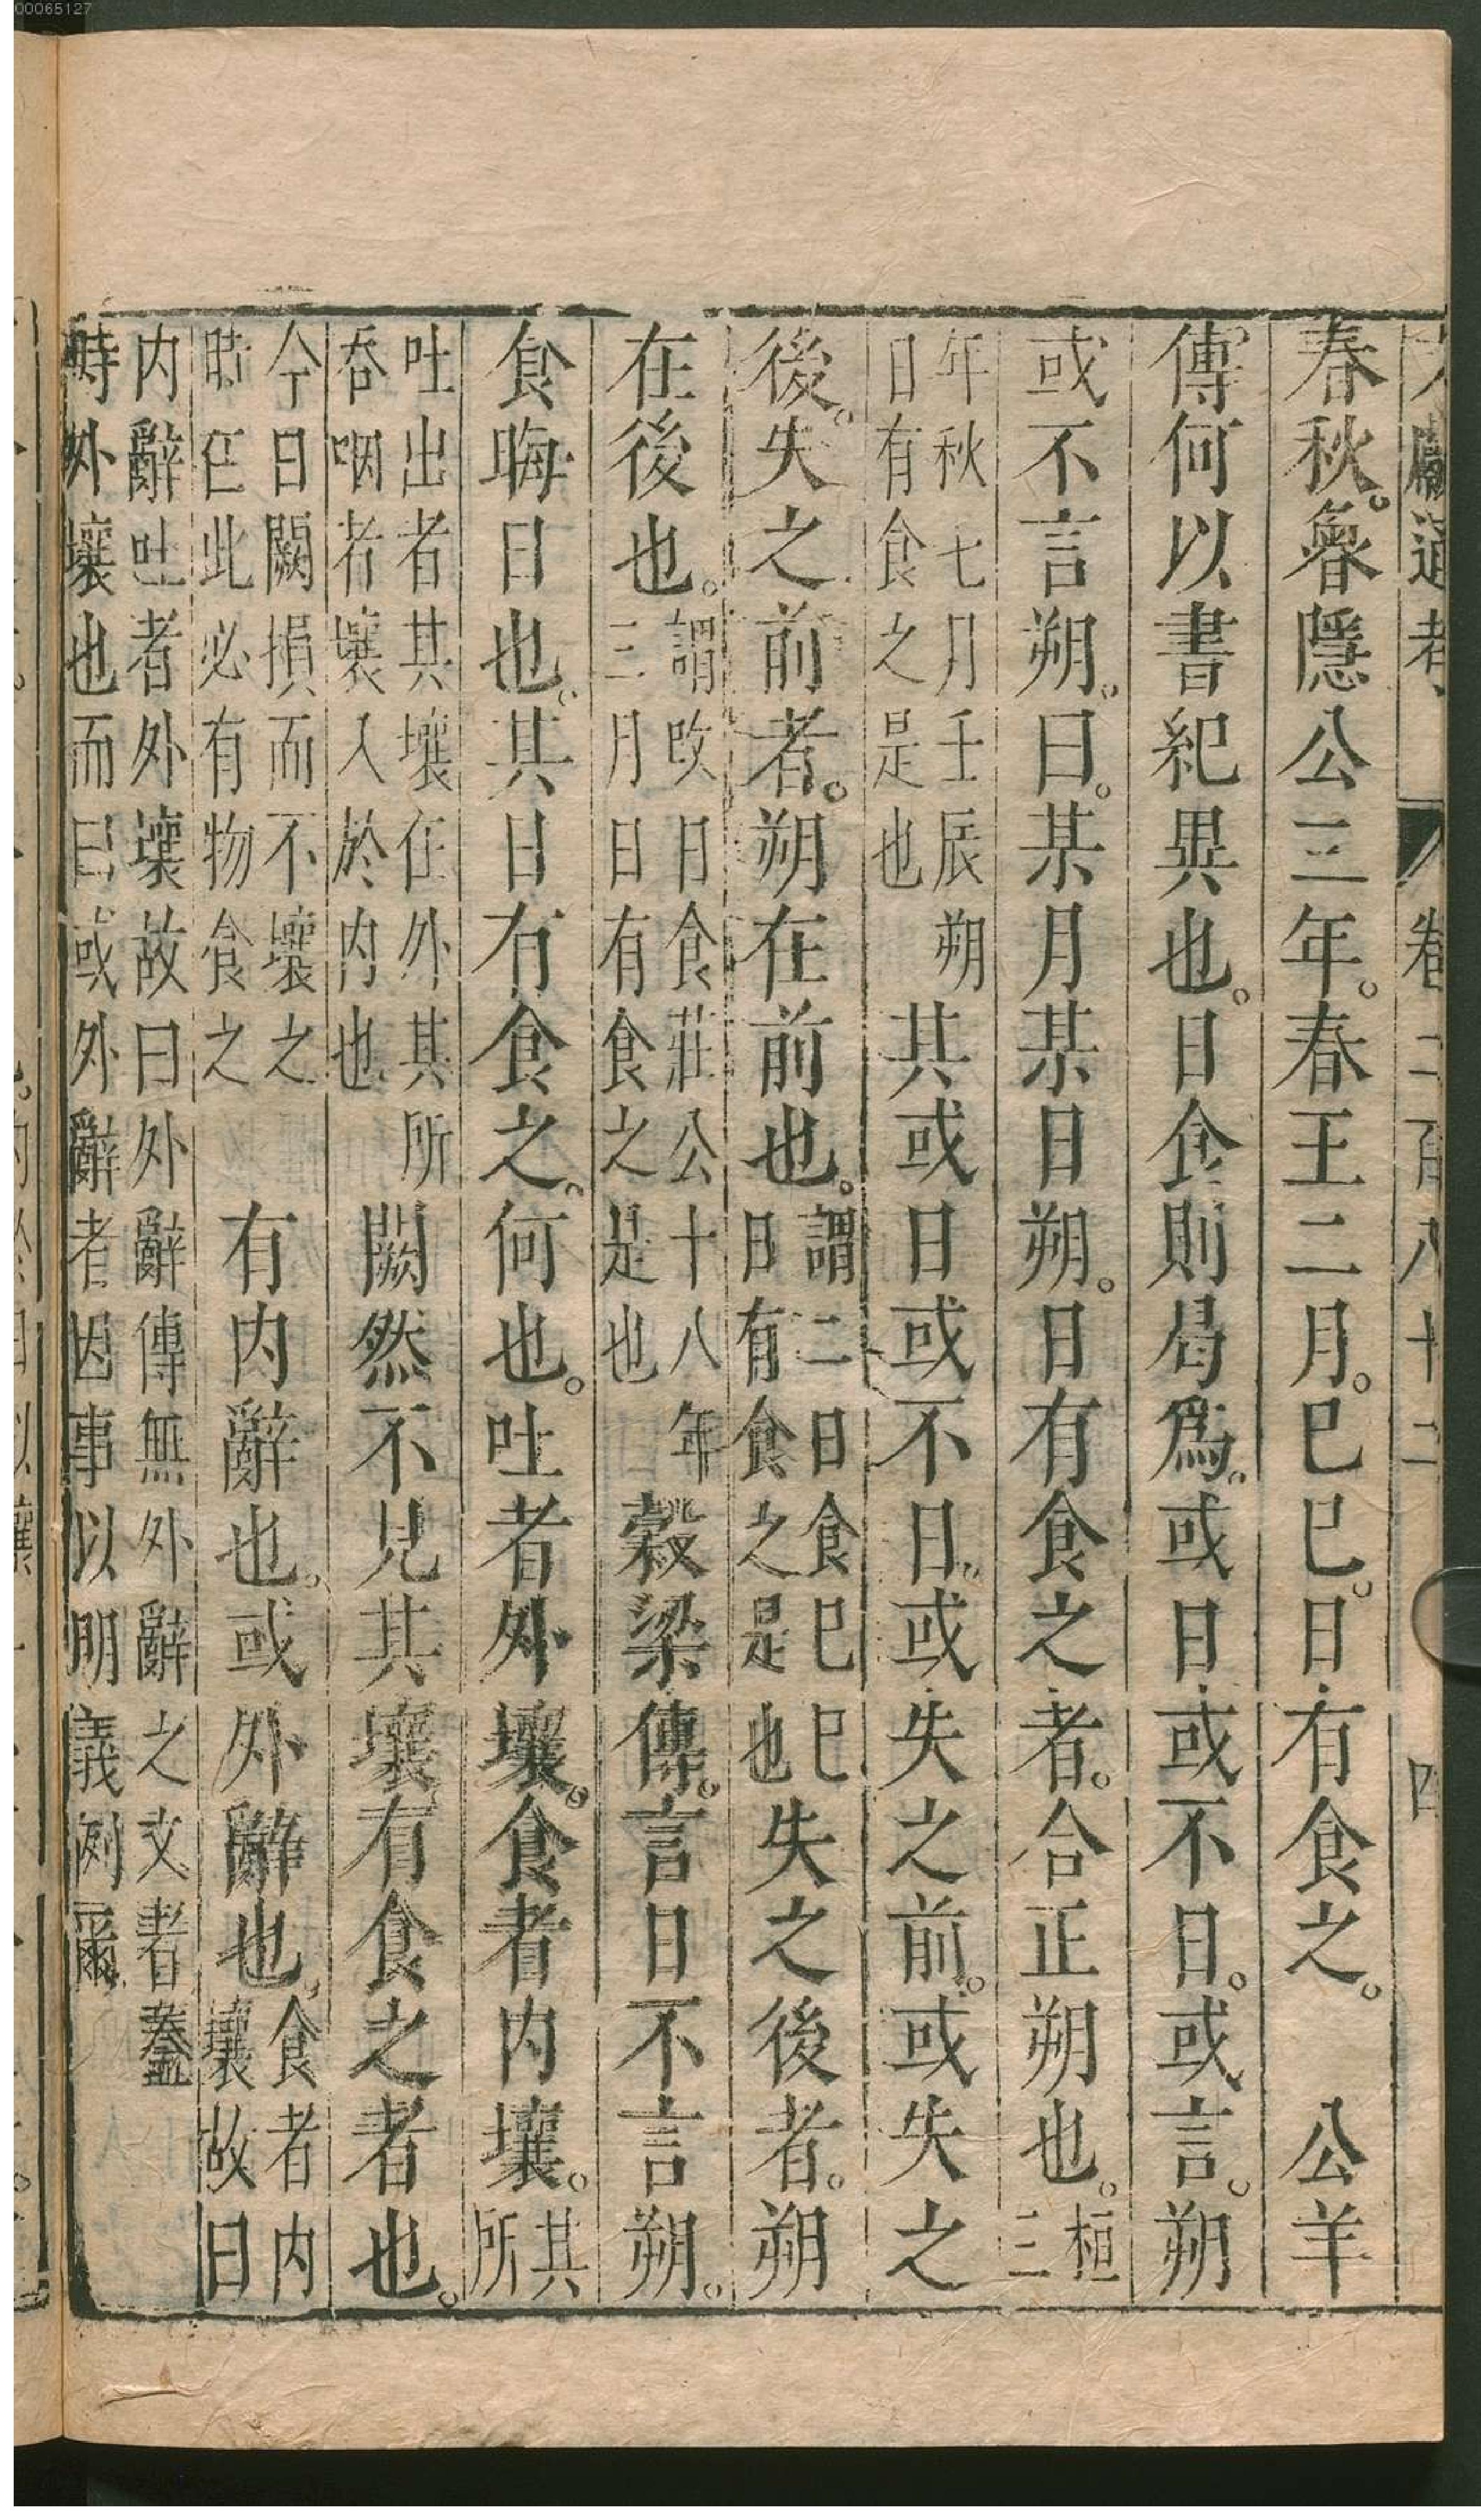 00065127
文獻通考 卷二百八十二 四
春秋。魯隱公三年。春王二月。巳巳。日有食之。 公羊
傳何以書紀異也。日食則曷爲。或日或不日。或言。朔
或不言朔。曰。某月某日朔。日有食之者。合正朔也。桓三
年秋七月壬辰朔日有食之是也其或日或不日。或失之前。或失之
後。失之前者。朔在前也。謂二日食巳巳日有食之是也失之後者。朔
在後也。謂晦日食莊公十八年三月日有食之是也穀梁傳。言日不言朔。
食晦日也。其日有食之。何也。吐者外壤。食者內壤。其所
吐出者其壤在外其所吞咽者壤入於內也闕然不見其壤有食之者也。
今日闕損而不壤之時在此必有物食之有內辭也。或外辭也。食者內壤故曰
內辭吐者外壤故曰外辭傳無外辭之文者蓋時外壤也而曰或外辭者因事以明義例爾